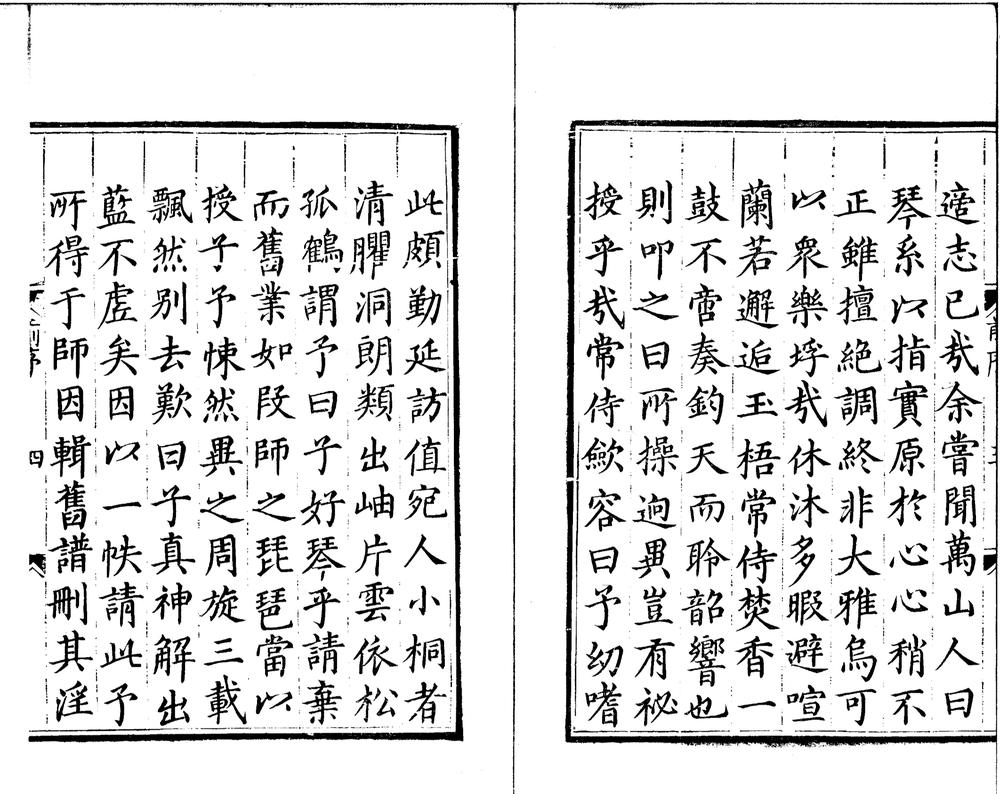 適志已㢤余嘗聞萬山人曰
琴系以指實原於心心稍不
正雖擅絕調終非大雅烏可
以眾樂垺㢤休沐多暇避喧
蘭若邂逅玉梧常侍焚香一
鼓不啻奏鈞天而聆韶響也
則叩之曰所操逈異豈有祕
授乎㢤常侍歛容曰予幼嗜
此頗勤延訪值宛人小桐者
清臞洞朗類出岫片雲依松
孤鶴謂予曰子好琴乎請棄
而舊業如叚師之琵琶當以
授子予悚然異之周旋三載
飄然别去歎曰子真神解出
藍不虛矣因以一帙請此予
所得于師因輯舊譜刪其淫
四